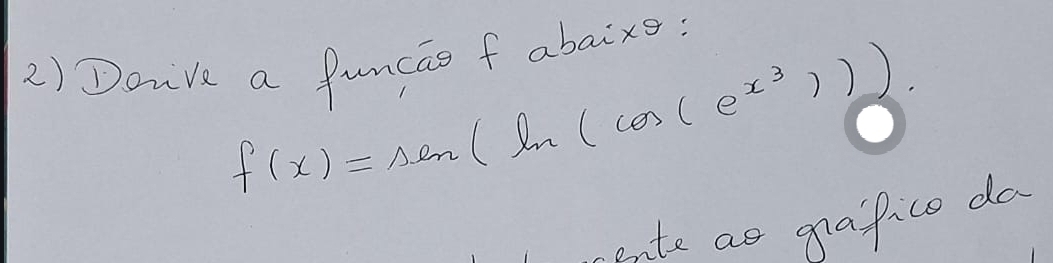 2) Derive a função f abaixo:
f(x) = sen( ln ( cos ( e^{x^3} ) ) ).
ao gráfico da